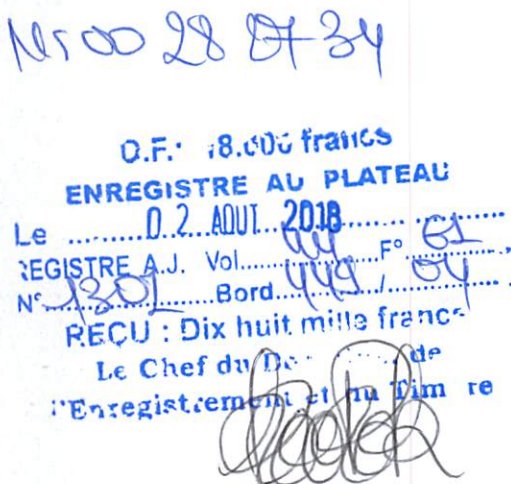 N500 28 27 34
D.F.: 18.000 francs
ENREGISTRE AU PLATEAU
Le ......... 02 AOUT 2018 ..................
REGISTRE A.J. Vol....... 44 .......F° 61 .......
N° 1302 .........Bord.... 449 / 04 ..........
REÇU : Dix huit mille francs
Le Chef du Do de
l'Enregistrement et du Timbre